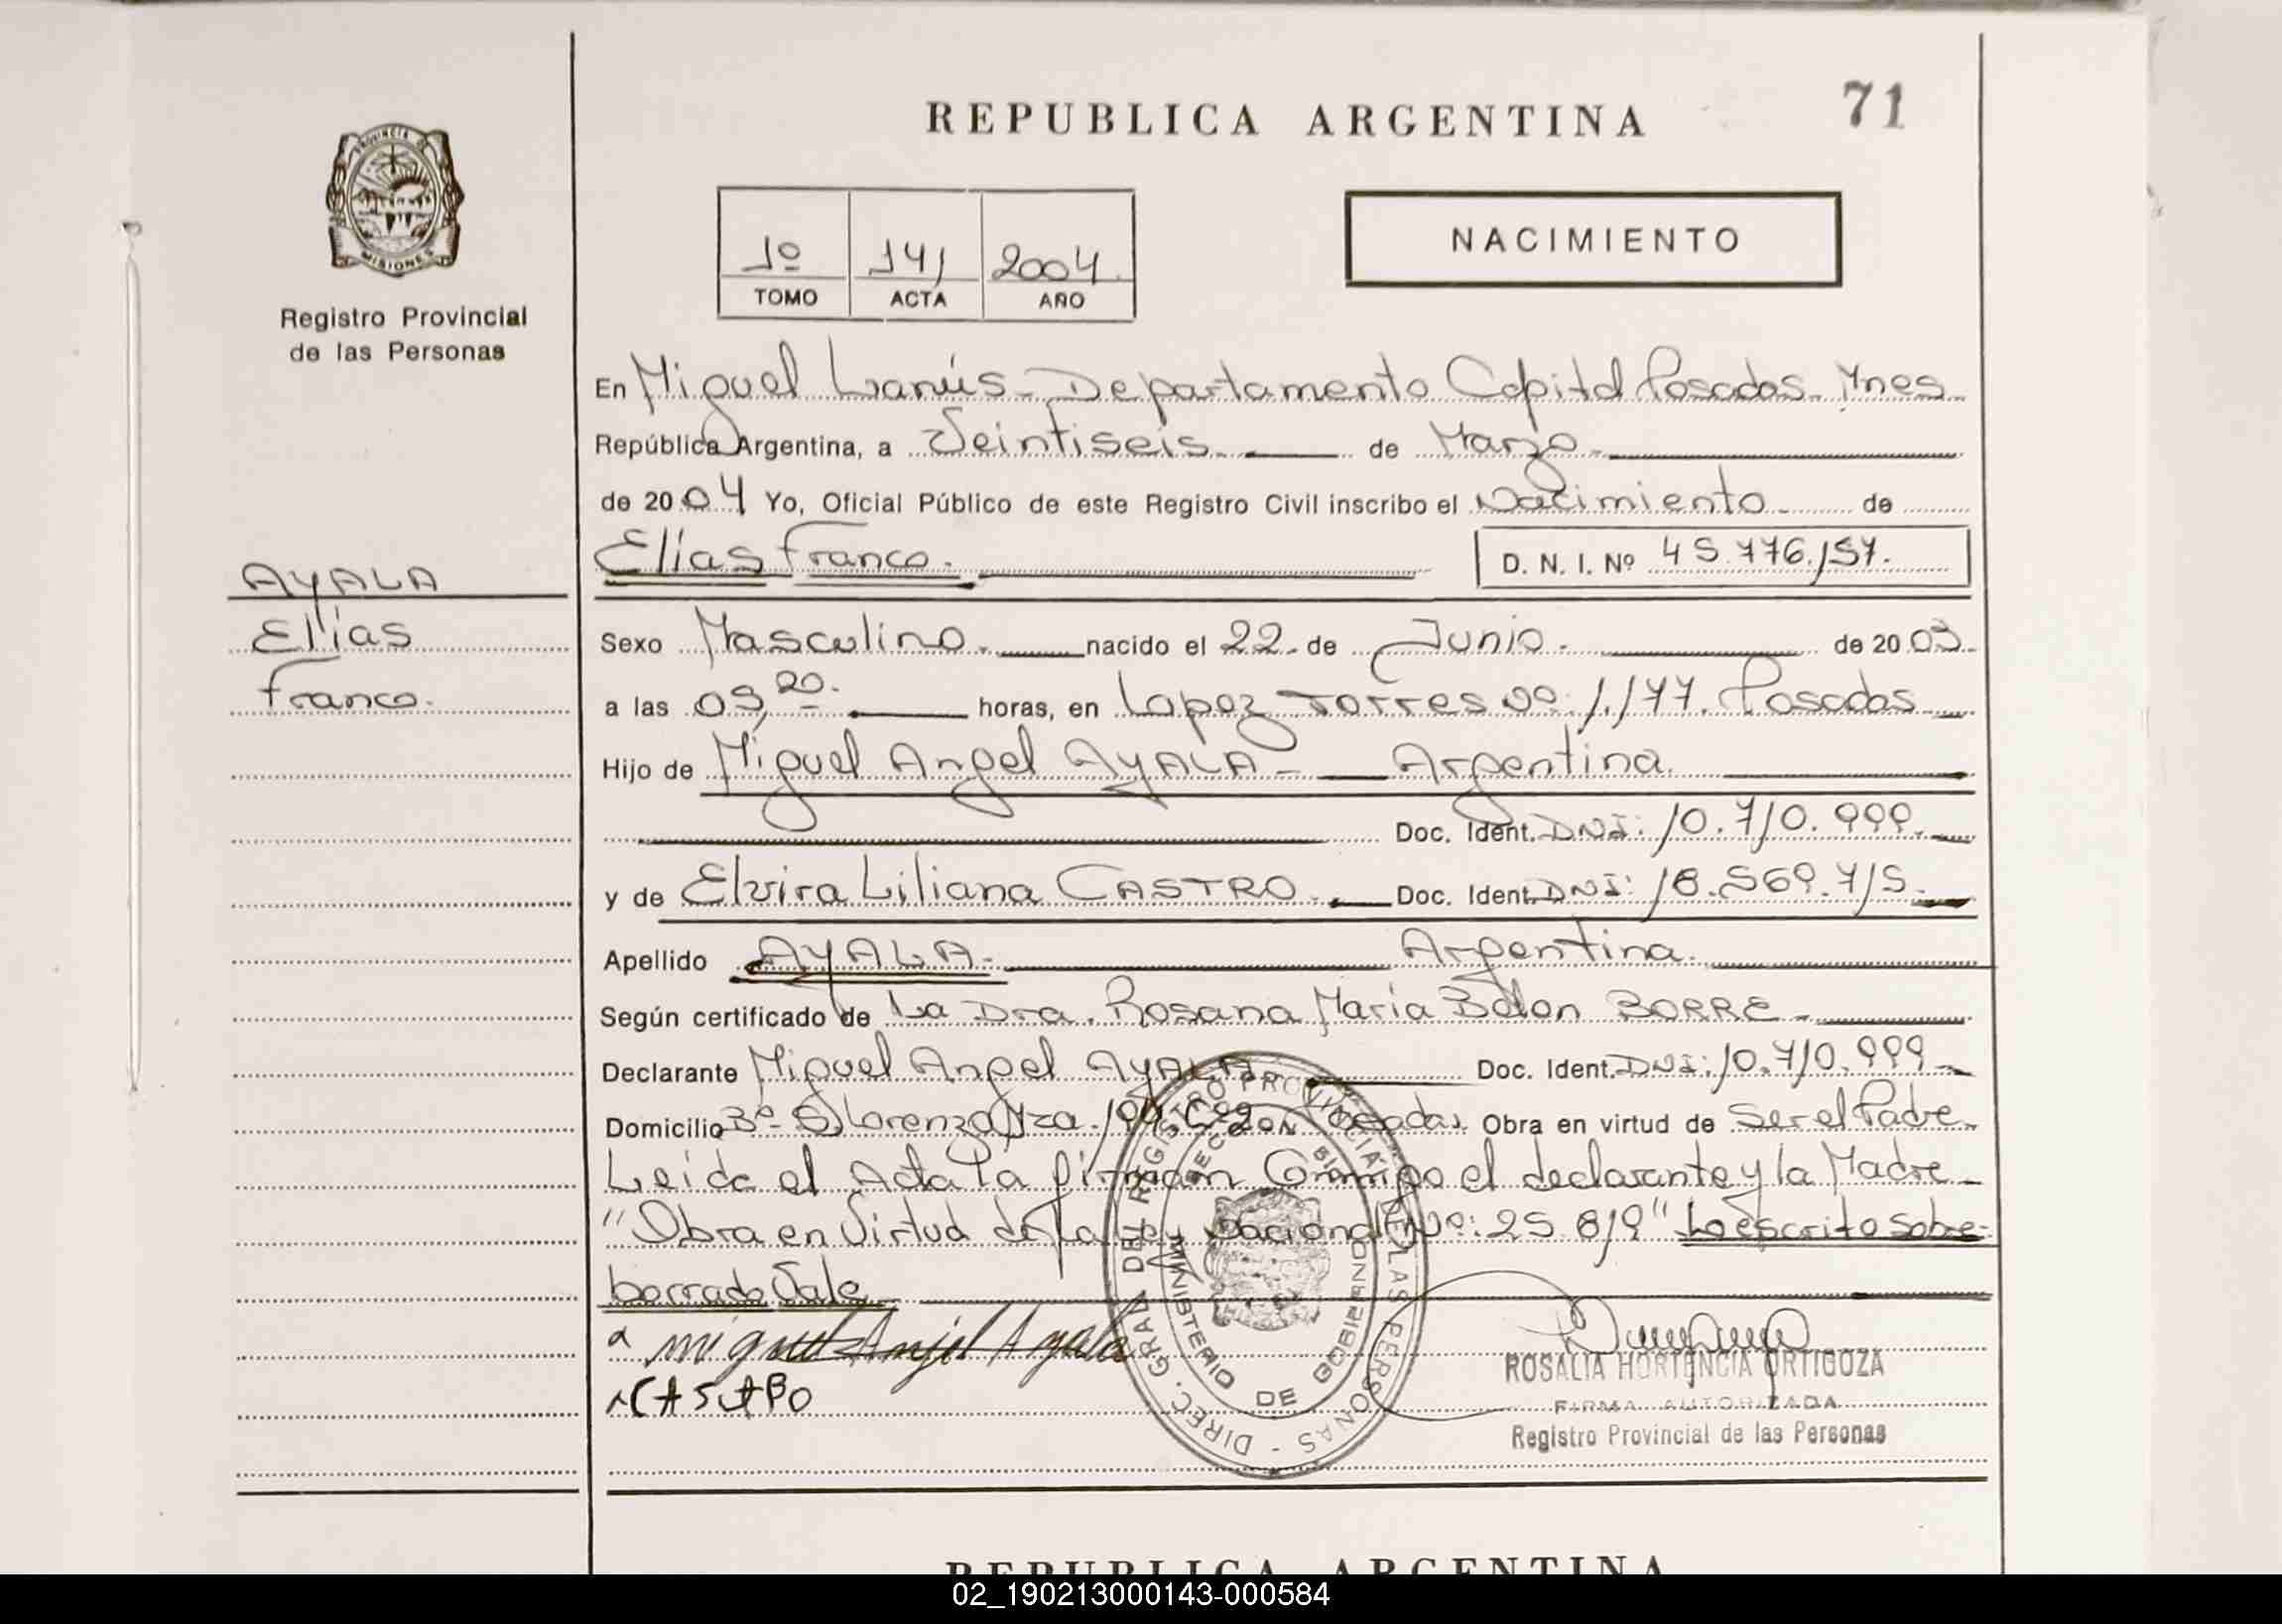 REPUBLICA ARGENTINA
71
PROVINCIA DE
MISIONES
Registro Provincial
de las Personas
1º 141 2004
TOMO ACTA AÑO
NACIMIENTO
En Miguel Lanús - Departamento Capital Posadas - Mnes
República Argentina, a Veintiseis de Marzo
de 2004 Yo, Oficial Público de este Registro Civil inscribo el Nacimiento de
Elías Franco. D. N. I. Nº 45.776.157.
AYALA
Elías
Franco.
Sexo Masculino. nacido el 22 de Junio. de 2003.
a las 09,20. horas, en Lopez Torres Nº: 1.177. Posadas
Hijo de Miguel Angel AYALA - Argentina.
Doc. Ident. DNI: 10.710.999.
y de Elvira Liliana CASTRO. Doc. Ident. DNI: 18.569.715.
Apellido AYALA. Argentina.
Según certificado de La Dra. Rosana María BORRE -
Declarante Miguel Angel AYALA Doc. Ident. DNI: 10.710.999.
Domicilio Bº S. Lorenzo Posadas Obra en virtud de Ser el Padre
Leida el Acta la firman Conmigo el declarante y la Madre
"Obra en Virtud de la Ley Nacional Nº: 25.819" Lo escrito sobre
borrado Vale
Miguel Anjel Ayala
CASTRO
DIREC. GRAL DEL REGISTRO PROVINCIAL DE LAS PERSONAS
MINISTERIO DE GOBIERNO
ROSALIA HORTENCIA ORTIGOZA
FIRMA AUTORIZADA
Registro Provincial de las Personas
REPUBLICA ARGENTINA
02_190213000143-000584